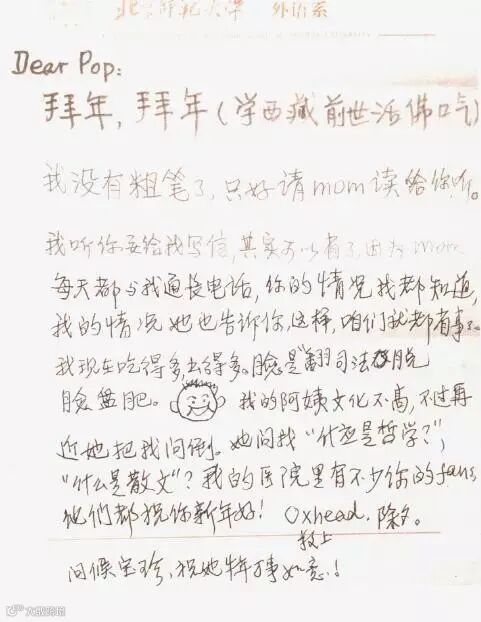 北京师范大学 外语系
Dear Pop:
拜年,拜年(学西藏前世活佛口气)
我没有粗笔了,只好请mom读给你听。
我听你要给我写信,其实可以省了,因为mom
每天都与我通长电话,你的情况我都知道,
我的情况她也告诉你,这样,咱们就都有事了。
我现在吃得多,出得多。脸是"翻司法脱
脸盘肥。 我的阿姨文化不高,不过
近她把我问倒。她问我"什么是哲学?",
"什么是散文"?我的医院里有不少你的fans,
他们都祝你新年好! Oxhead. 除夕。
敬上
问候宝珍、祝她年事如意!
大数跨境